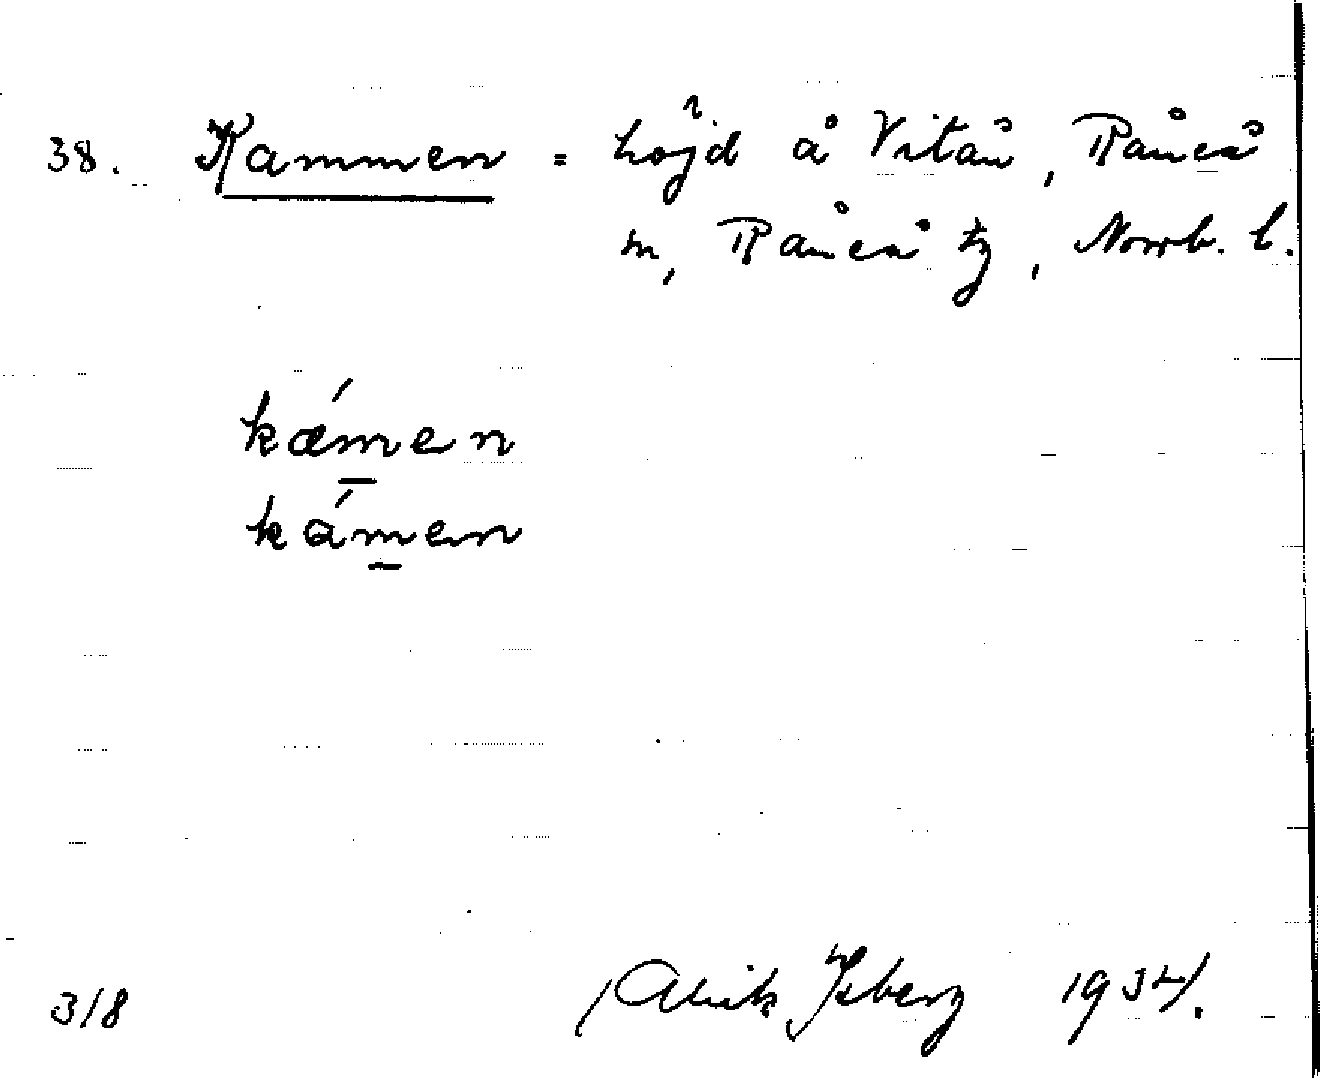 38. Kammen = höjd å Vitån, Råneå
sn, Råneå tg, Norrb. l.
kámen
kámen
3/8 Alrik Isberg 1934.